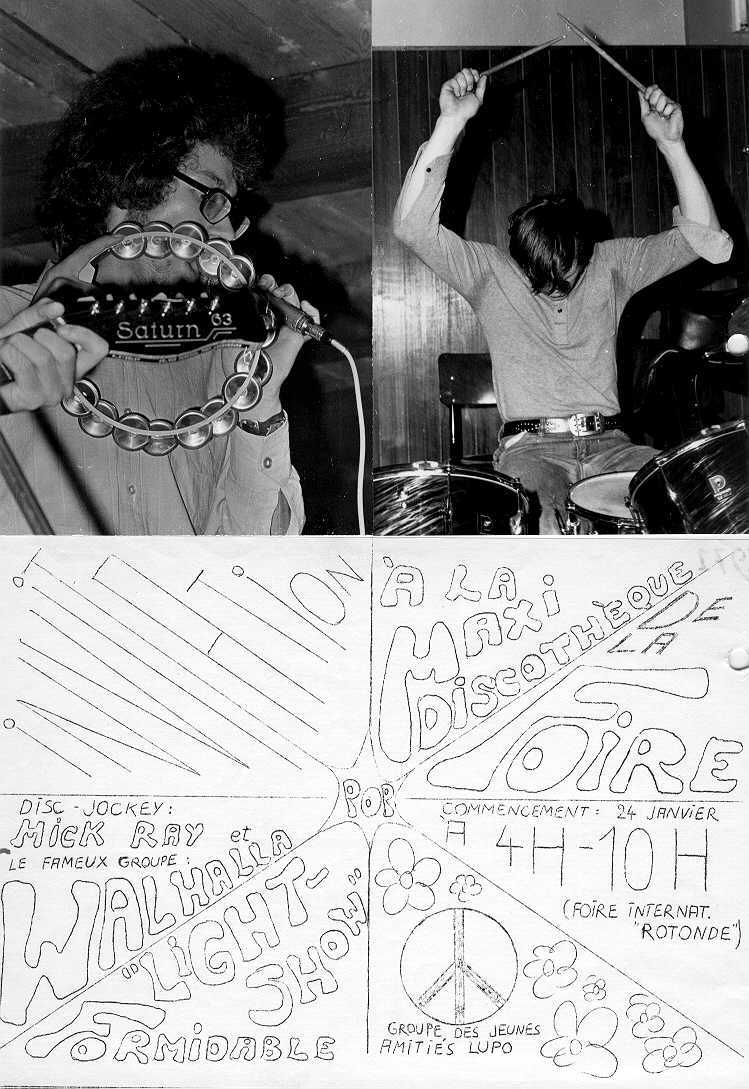 Saturn 63
iNViTATiON
À LA
MAXi
DiSCOTHÈQUE
DE
LA
FOiRE
POP
DiSC-JOCKEY:
MiCK RAY et
LE FAMEUX GROUPE:
WALHALLA
"LiGHT-
SHOW"
FORMiDABLE
COMMENCEMENT: 24 JANViER
A 4H-10H
(FOÏRE ÏNTERNAT.
"ROTONDE")
GROUPE DES JEUNES
AMiTiÉS LUPO